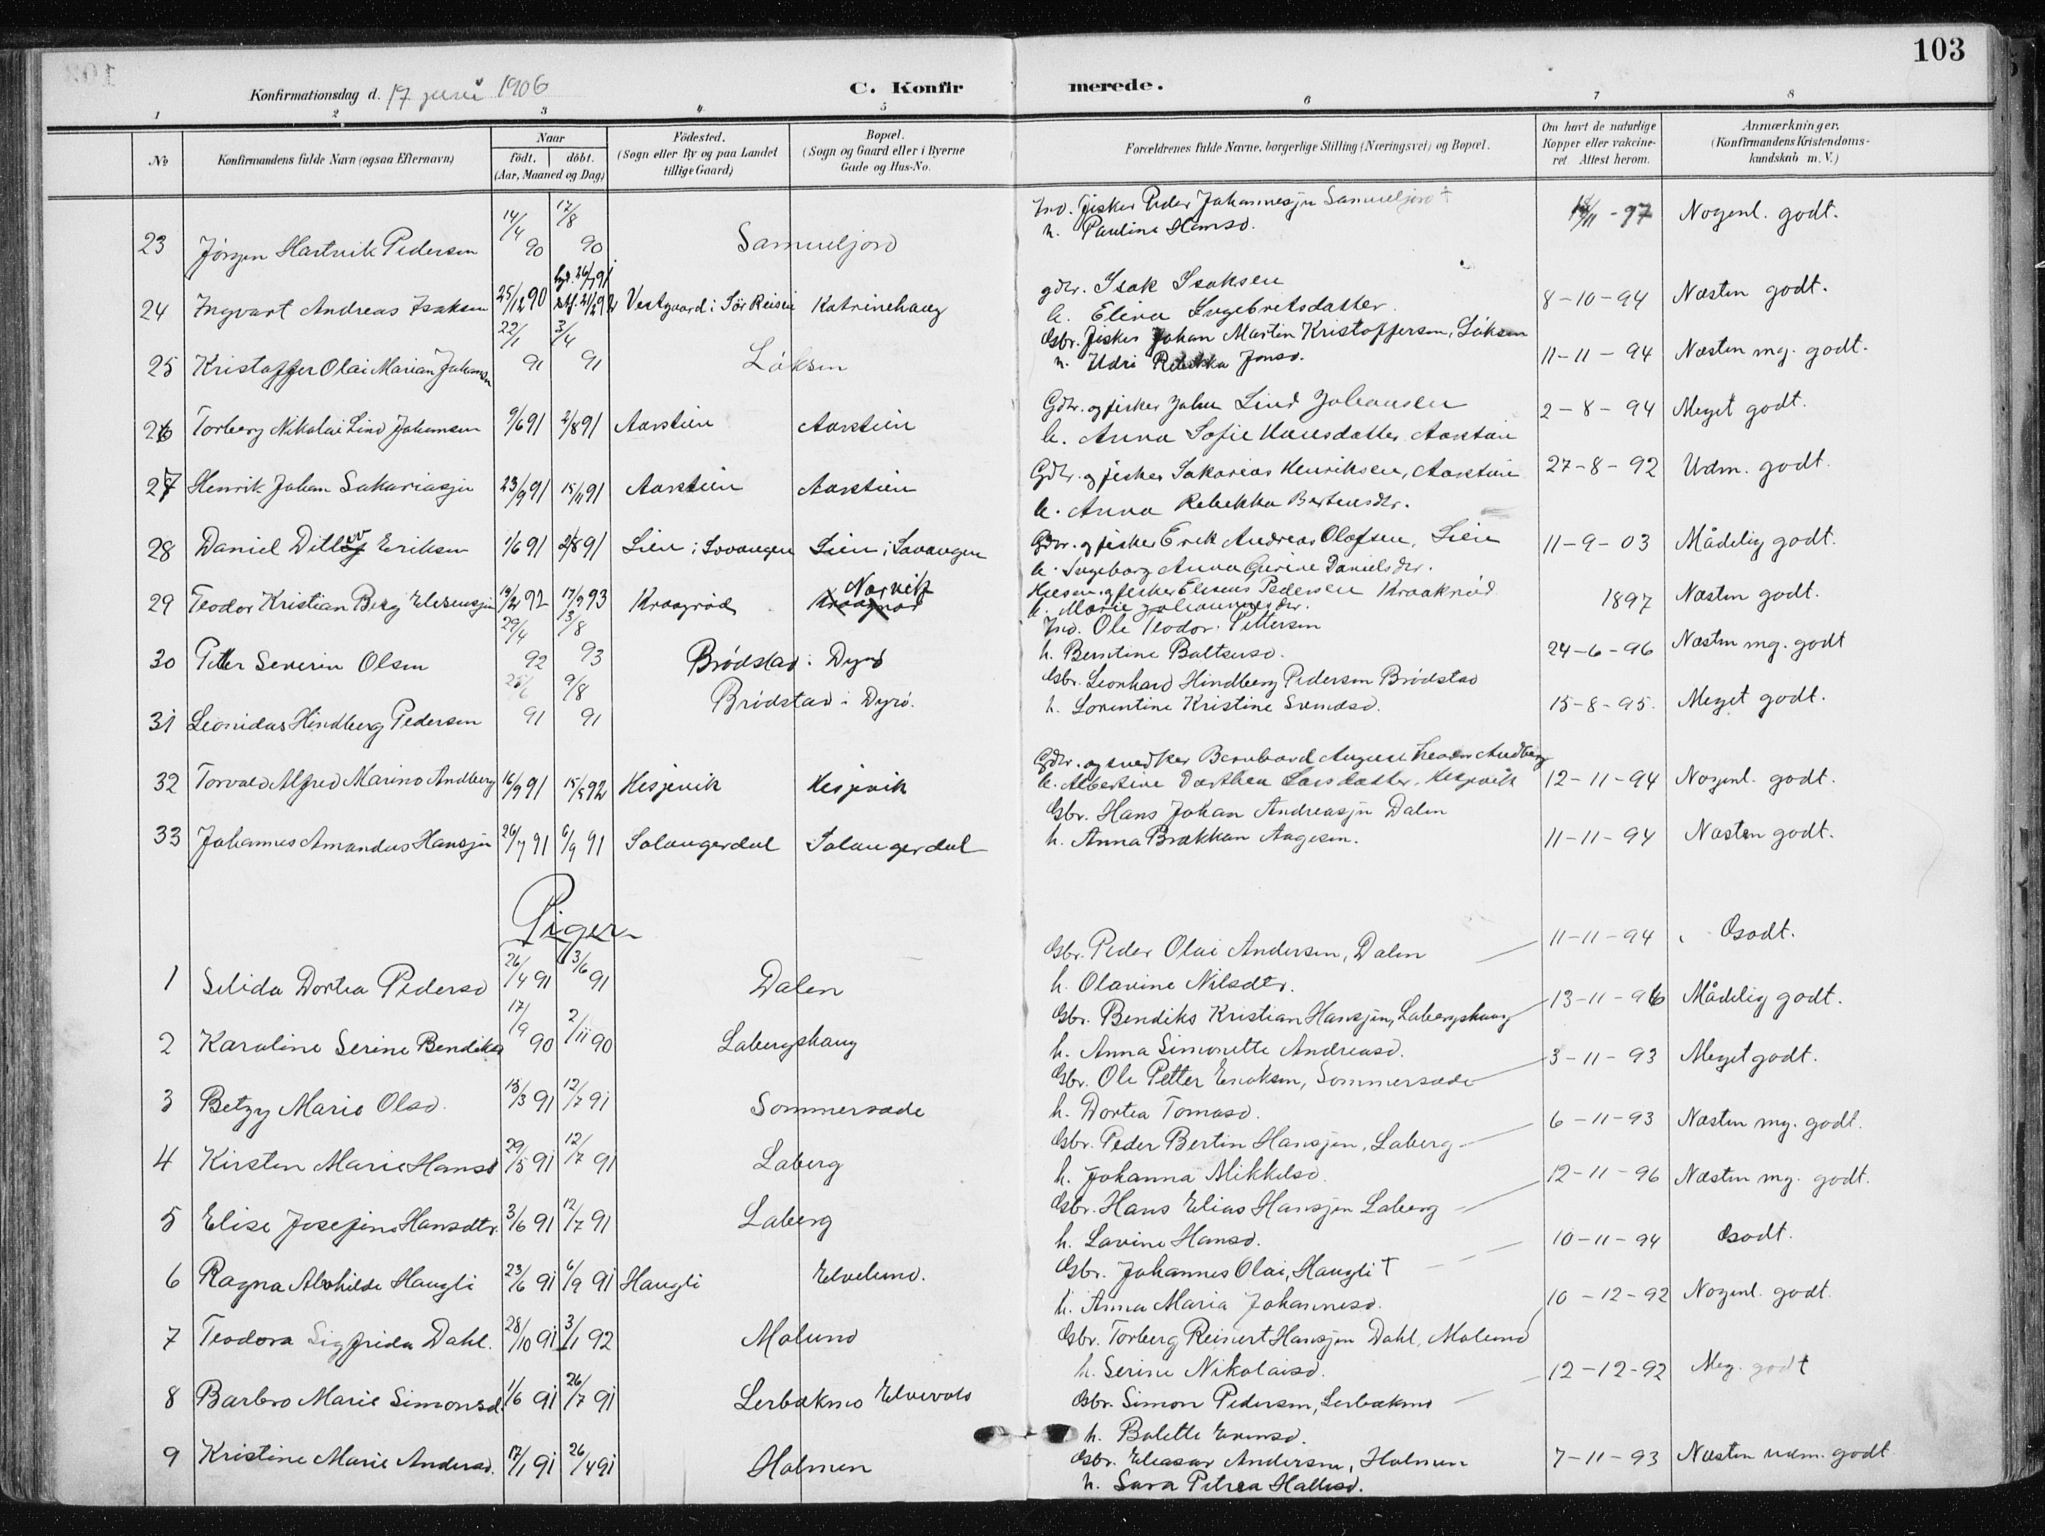 103
Konfirmationsdag d. 17 juni 1906
C. Konfirmerede.
1 2 3 4 5 6 7 8
No
Konfirmandens fulde Navn (ogsaa Efternavn)
Naar
født. døbt.
(Aar, Maaned og Dag)
Fødested.
(Sogn eller By og paa Landet tillige Gaard)
Bopæl.
(Sogn og Gaard eller i Byerne Gade og Hus-No.
Forældrenes fulde Navne, borgerlige Stilling (Næringsvei) og Bopæl.
Om havt de naturlige Kopper eller vakcineret. Attest herom.
Anmærkninger.
(Konfirmandens Kristendomskundskab m. V.)
23 Jørgen Hartvik Pedersen 14/4 90 17/8 90 Samueljord
Ind. fisker Peder Johannessjn Samueljord †
h. Pauline Hansd.
11-97 Nogenl. godt.
24 Ingvart Andreas Isaksen 25/12 90 26/7 91 Vestgaard i Sør Reisen Katrinehaug
gdbr. Isak Isaksen
h. Elina Ingebretsdatter
8-10-94 Næsten godt.
25 Kristoffer Olai Marian Johansen 22/1 91 3/4 91 Løksen
Gbr. fisker Johan Martin Kristoffersen, Løksen
h. Udri Rebekka Jonsd.
11-11-94 Næsten mg. godt.
26 Torberg Nikolai Lind Johansen 9/6 91 2/8 91 Aarstien Aarstien
Gdbr. og fisker Johan Lind Johansen
h. Anna Sofie Hansdatter Aarstien
2-8-94 Meget godt.
27 Henrik Johan Sakariasjn 23/9 91 15/11 91 Aarstien Aarstien
Gdbr. og fisker Sakarias Henriksen, Aarstien
h. Anna Rebekka Bertensdr.
27-8-92 Udm. godt.
28 Daniel Ditlev Eriksen 1/6 91 2/8 91 Lien i Lavangen Lien i Lavangen
Gdbr. og fisker Erik Andreas Olafsen, Lien
h. Ingeborg Anna Gurine Danielsdr.
11-9-03 Mådelig godt.
29 Teodor Kristian Berg Elisensjn 92 17/9 93 Kraagrød Narvik
og fisker Elisens Pedersen Kraakrød
h. Marie Johannesdr.
1897 Næsten godt.
30 Petter Severin Olsen 29/4 92 13/8 93 Brødstad i Dyrø
Ind. Ole Teodor Pettersen
h. Berntine Baltsersd.
24-6-96 Næsten mg. godt
31 Leonidas Hindberg Pedersen 25/6 91 9/8 91 Brødstad i Dyrø.
Gbr. Leonhard Hindberg Pedersen Brødstad
h. Lorentine Kristine Svendsd.
15-8-95. Meget godt.
32 Torvald Alfred Marino Andberg 16/9 91 15/5 92 Hesjevik Hesjevik
Gdbr. og snedker Bernhard August Andberg
h. Albertine Dorthea Larsdatter, Hesjevik
12-11-94 Nogenl. godt.
33 Johannes Amandus Hansjn 26/7 91 6/9 91 Salangerdal Salangerdal
Gbr. Hans Johan Andreasjn Dalen
h. Anna Brækkan Aagesen.
11-11-94 Næsten godt.
Piger
1 Selida Dortea Pedersd 26/4 91 13/6 91 Dalen
Gbr. Peder Olai Andersen, Dalen
h. Olavine Nilsdtr.
11-11-94 Godt.
2 Karoline Serine Bendiksd 17/9 90 2/11 90 Labergshaug
Gbr. Bendiks Kristian Hansjen, Labergshaug
h. Anna Simonette Andreasd.
13-11-96 Mådelig godt.
3 Betzy Marie Olsd. 15/3 91 12/7 91 Sommersæde
Gbr. Ole Petter Enoksen, Sommersæde
h. Dortea Tomasd.
3-11-93 Meget godt.
4 Kirsten Marie Hansd 29/5 91 12/7 91 Laberg
Gbr. Peder Bertin Hansjen, Laberg
h. Johanna Mikkelsd.
6-11-93 Næsten mg. godt.
5 Elise Josefine Hansdtr. 3/6 91 12/7 91 Laberg
Gbr. Hans Elias Hansjen Laberg
h. Lavine Hansd.
12-11-96 Næsten mg. godt.
6 Ragna Alvhilde Haugli 23/6 91 6/9 91 Haugli Elvelund.
Gbr. Johannes Olai, Haugli †
h. Anna Maria Johannesd.
10-11-94 Godt.
7 Teodora Sigfrida Dahl. 28/10 91 3/1 92 Molund
Gbr. Torberg Reinert Hansjen Dahl, Molund
h. Serine Nikolaisd.
10-12-92 Nogenl. godt.
8 Barbro Marie Simonsd 1/6 91 26/7 91 Lerbækmo Elvevold
Gbr. Simon Pedersen, Lerbækmo
h. Bolette Evensd.
12-12-92 Meg. godt
9 Kristine Marie Andersd. 17/1 91 26/4 91 Holmen
Gbr. Eleasar Andersen, Holmen
h. Sara Petrea Hallesd.
7-11-93 Næsten udm. godt